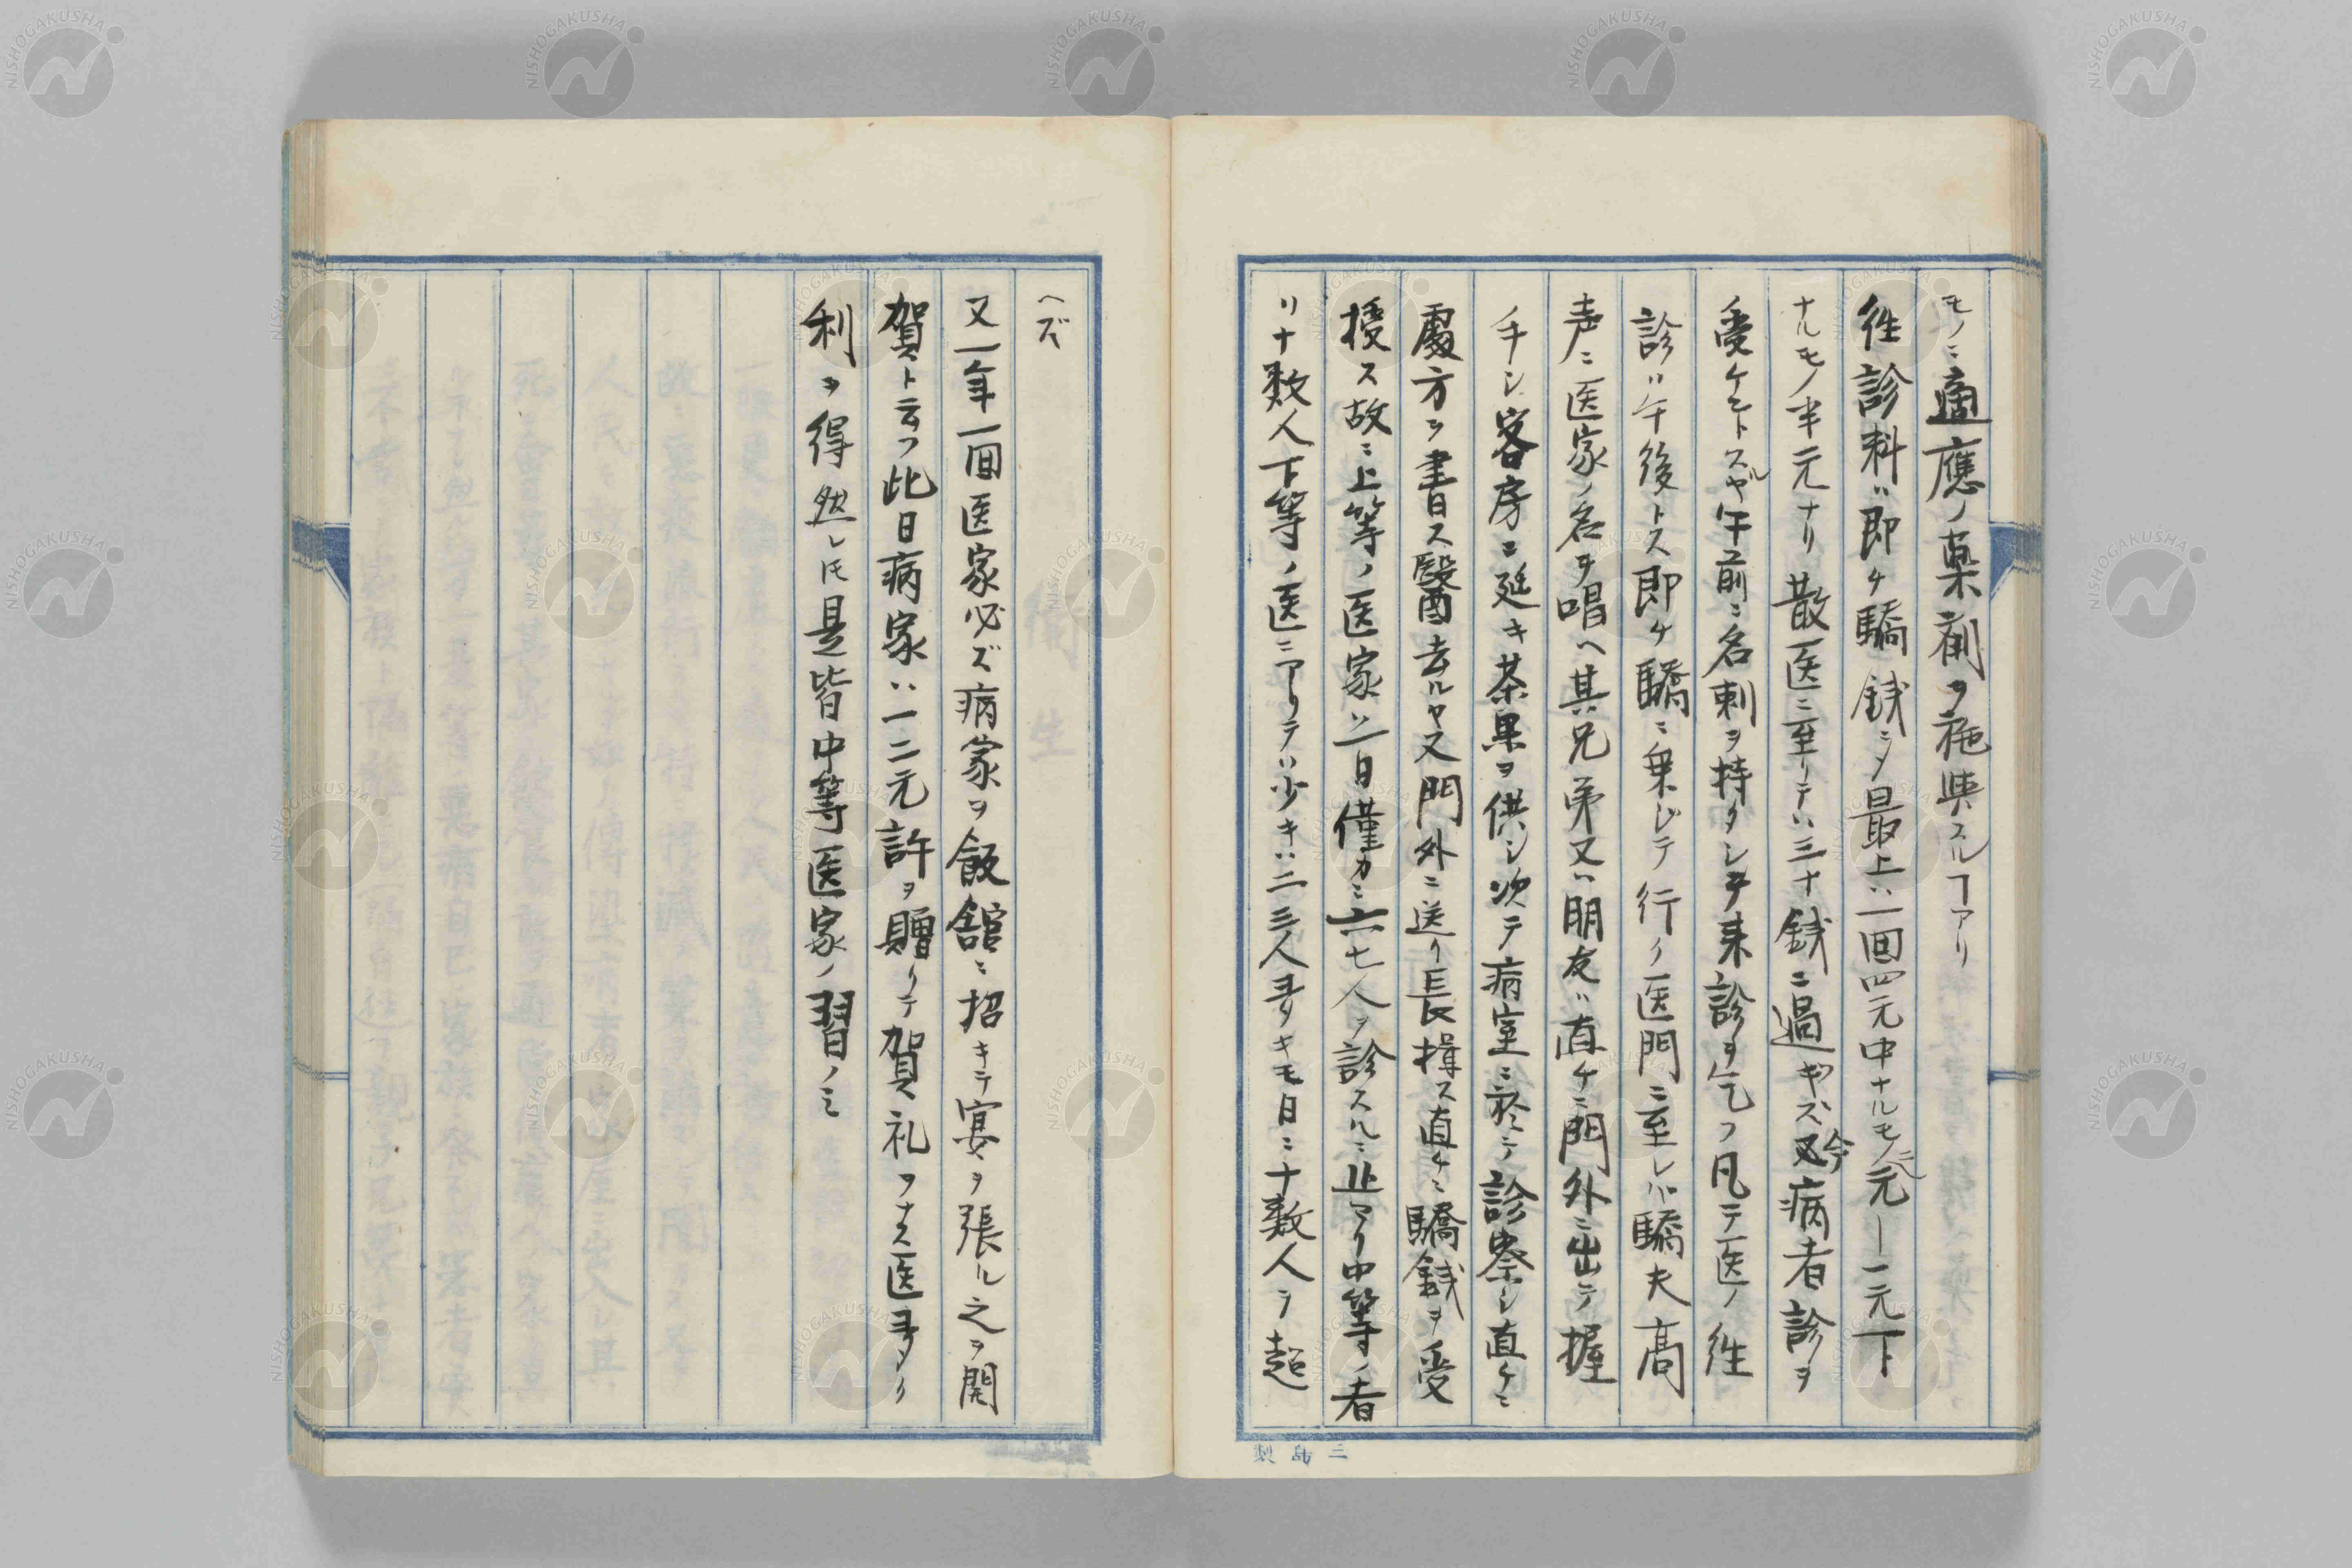 モノニ適應ノ薬剤ヲ施与スルヿアリ
往診料ハ即ケ驕銭ニメ最上ハ一回四元中ナルモノハ二元｜一元下
ナルモノ半元ナリ散医ニ至リテハ三十銭ニ過ギズ又今病者診ヲ
受ケントスルヤ午前ニ名刺ヲ持タシテ来診ヲ乞フ凡テ医ノ往
診ハ午後トス即ケ驕ニ乗ジテ行ク医門ニ至レバ驕夫高
声ニ医家ノ名ヲ唱ヘ其兄弟又ハ朋友ハ直ケニ門外ニ出テ握
手シ客房ニ延キ茶果ヲ供シ次テ病室ニ於テ診察シ直ケニ
處方ヲ書ス醫去ルヤ又門外ニ送リ長揖ス直ケニ驕銭ヲ受
授ス故ニ上等ノ医家ハ一日僅カニ六七人ヲ診スルニ止マリ中等ノ者
リ十数人下等ノ医ニアリテハ少キハ二三人多キモ日ニ十数人ヲ超
ヘズ
又一年一回医家必ズ病家ヲ飯舘ニ招キテ宴ヲ張ル之ヲ開
賀ト云フ此日病家ハ一二元許ヲ贈リテ賀礼ヲナス医多ク
利ヲ得然レ𪜈是皆中等医家ノ習ノミ
三島製
NISHOGAKUSHA